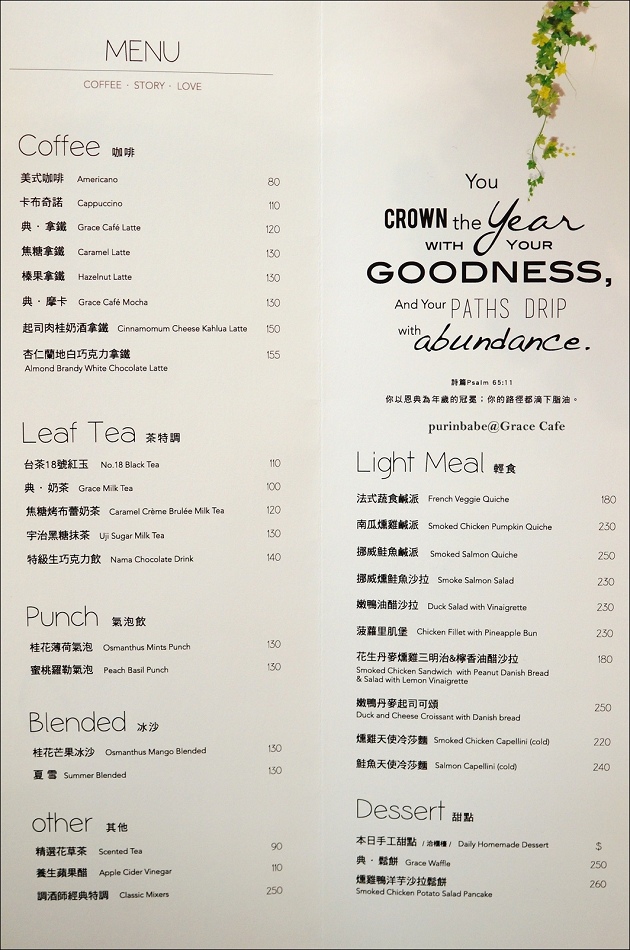 MENU
COFFEE · STORY · LOVE
Coffee 咖啡
美式咖啡 Americano 80
卡布奇諾 Cappuccino 110
典 · 拿鐵 Grace Café Latte 120
焦糖拿鐵 Caramel Latte 130
榛果拿鐵 Hazelnut Latte 130
典 · 摩卡 Grace Café Mocha 130
起司肉桂奶酒拿鐵 Cinnamomum Cheese Kahlua Latte 150
杏仁蘭地白巧克力拿鐵 155
Almond Brandy White Chocolate Latte
Leaf Tea 茶特調
台茶18號紅玉 No.18 Black Tea 110
典 · 奶茶 Grace Milk Tea 100
焦糖烤布蕾奶茶 Caramel Crème Brulée Milk Tea 120
宇治黑糖抹茶 Uji Sugar Milk Tea 130
特級生巧克力飲 Nama Chocolate Drink 140
Punch 氣泡飲
桂花薄荷氣泡 Osmanthus Mints Punch 130
蜜桃羅勒氣泡 Peach Basil Punch 130
Blended 冰沙
桂花芒果冰沙 Osmanthus Mango Blended 130
夏 雪 Summer Blended 130
other 其他
精選花草茶 Scented Tea 90
養生蘋果醋 Apple Cider Vinegar 110
調酒師經典特調 Classic Mixers 250
You
CROWN the Year
WITH YOUR
GOODNESS,
And Your PATHS DRIP
with abundance.
詩篇Psalm 65:11
你以恩典為年歲的冠冕；你的路徑都滴下脂油。
purinbabe@Grace Cafe
Light Meal 輕食
法式蔬食鹹派 French Veggie Quiche 180
南瓜燻雞鹹派 Smoked Chicken Pumpkin Quiche 230
挪威鮭魚鹹派 Smoked Salmon Quiche 250
挪威燻鮭魚沙拉 Smoke Salmon Salad 230
嫩鴨油醋沙拉 Duck Salad with Vinaigrette 230
菠蘿里肌堡 Chicken Fillet with Pineapple Bun 230
花生丹麥燻雞三明治&檸香油醋沙拉 180
Smoked Chicken Sandwich with Peanut Danish Bread
& Salad with Lemon Vinaigrette
嫩鴨丹麥起司可頌 250
Duck and Cheese Croissant with Danish bread
燻雞天使冷莎麵 Smoked Chicken Capellini (cold) 220
鮭魚天使冷莎麵 Salmon Capellini (cold) 240
Dessert 甜點
本日手工甜點 / 洽櫃檯 / Daily Homemade Dessert $
典 · 鬆餅 Grace Waffle 250
燻雞洋芋沙拉鬆餅 260
Smoked Chicken Potato Salad Pancake